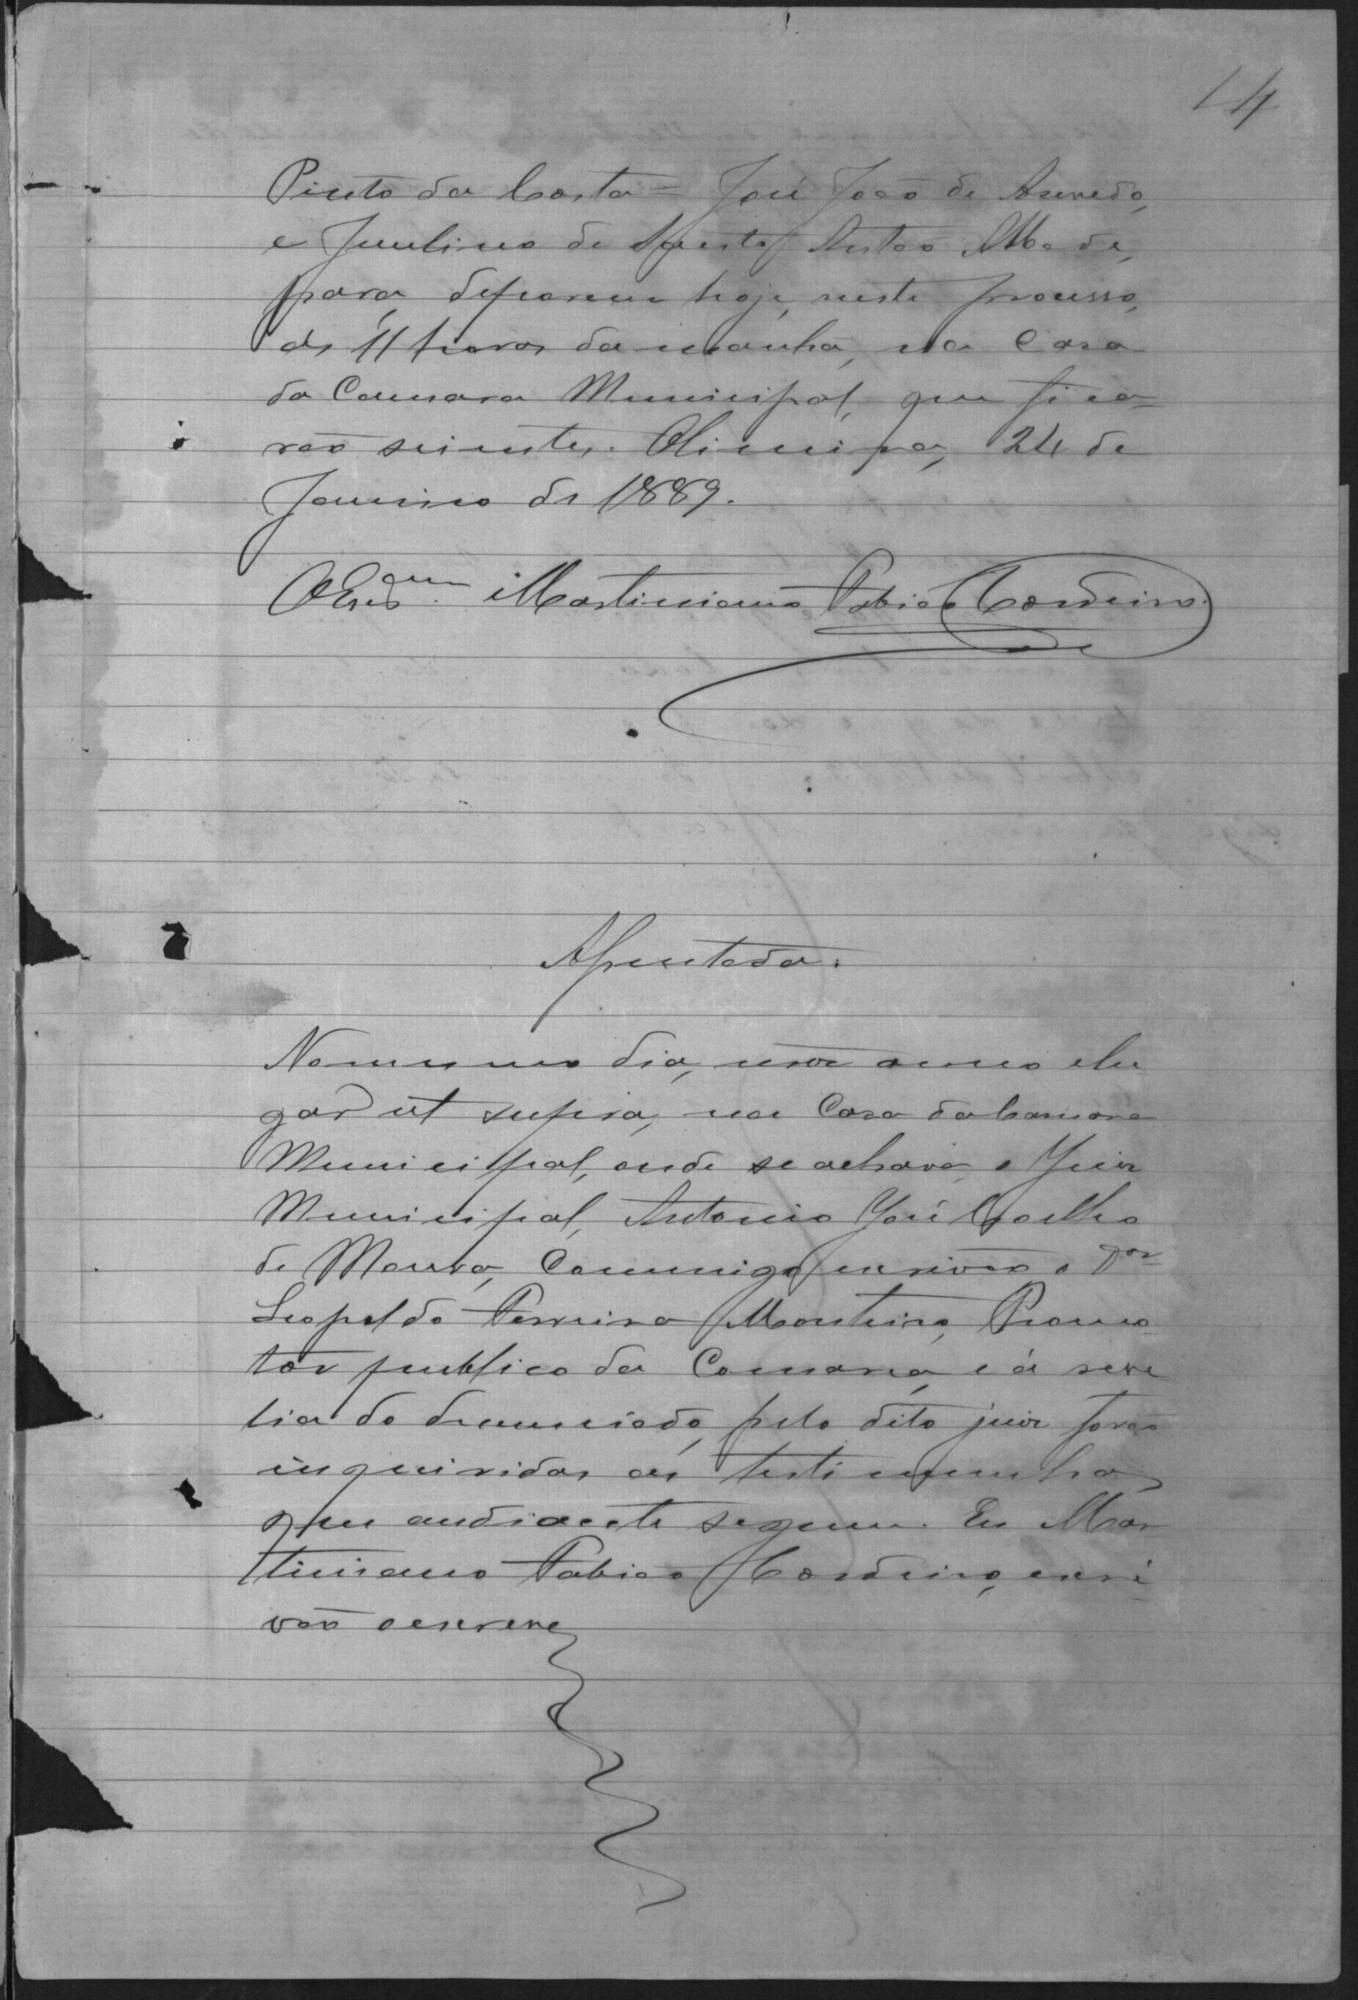 14
Pinto da Costa = José João de Asevedo,
e Juvelino de Santo Antão
para deporem hoje, neste processo,
ás 11 horas da manhã, na Casa
da Camara Municipal, que fica-
rão scientes. 24 de
Janeiro de 1889.
Martiniano Fabião Cordeiro.
Assentada.
No mesmo dia, mez anno e lu
gar ut supra, na Casa da Camara
Municipal, onde se achava o Juiz
Municipal, Antonio José Coelho
de Moura, Commigo escrivão o Dor
Leopoldo Ferreira Monteiro, Promo-
tor publico da Comarca, e á reve
lia do denunciado, pelo dito juiz forão
inqueridas as testimunhas
que andiante seguem. Eu Mar
tiniano Fabião Cordeiro, escri
vão o escreve